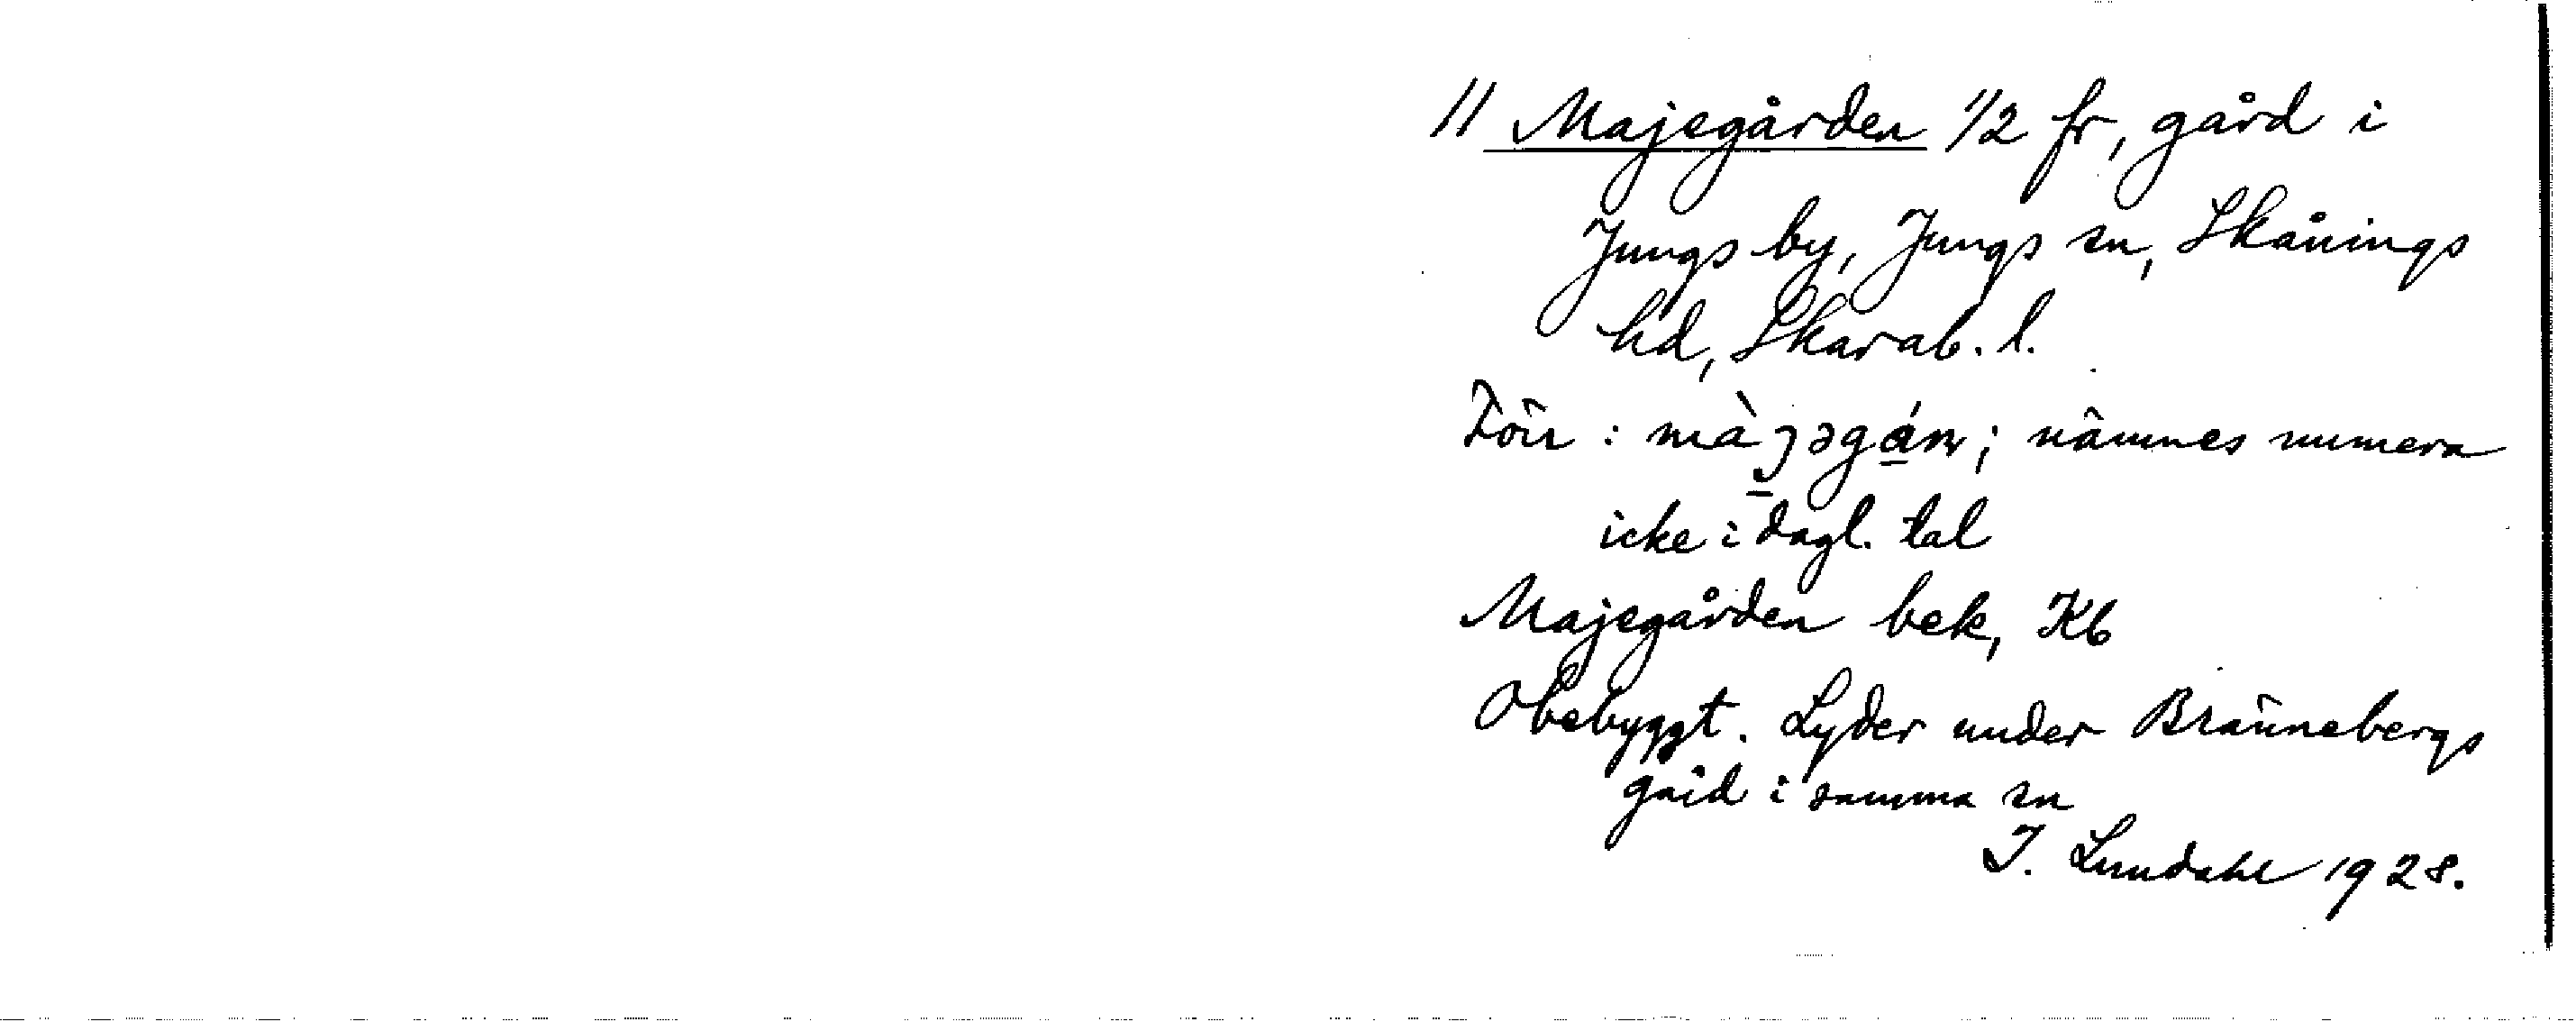 11 Majegården 1/2 fr, gård i
Jungs by, Jungs sn, Skånings
hd, Skarab. l.
: màjəgán; nämnes numera
icke i dagl. tal
Majegården bek, Kb
Obebyggt. Lyder under Brännebergs
gård i samma sn
I. Lundahl 1928.